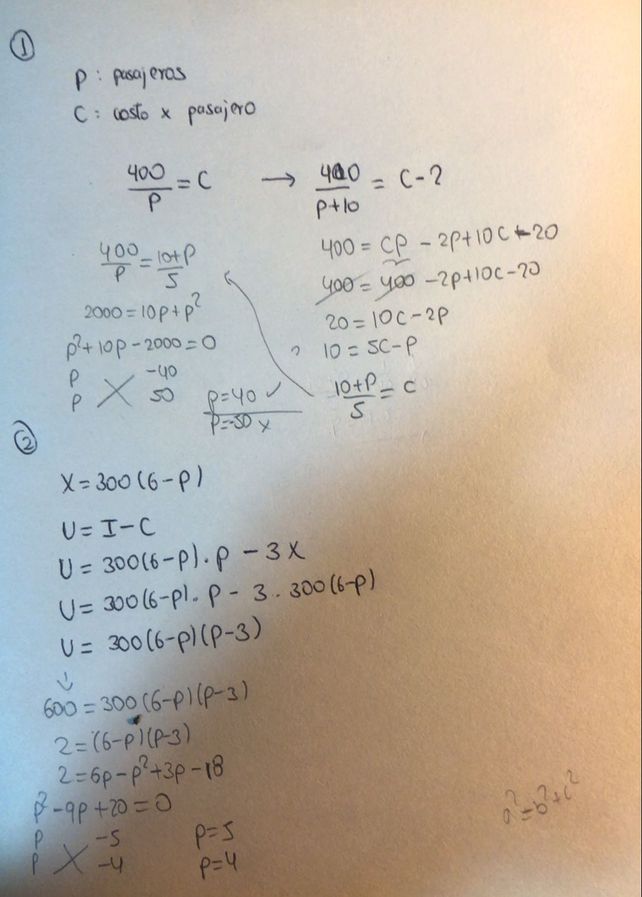 ①
P : pasajeros
C : costo x pasajero
400/P = C → 400/(P+10) = C-2
400 = CP - 2P + 10C - 20
400/P = (10+P)/5
400 = 400 - 2P + 10C - 20
2000 = 10P + P²
20 = 10C - 2P
P² + 10P - 2000 = 0
10 = 5C - P
P -40
P 50
P = 40 ✓
P = -50 x
(10+P)/5 = C
②
X = 300(6-P)
U = I - C
U = 300(6-P) · P - 3X
U = 300(6-P) · P - 3 · 300(6-P)
U = 300(6-P)(P-3)
↓
600 = 300(6-P)(P-3)
2 = (6-P)(P-3)
2 = 6P - P² + 3P - 18
P² - 9P + 20 = 0
P -5 P = 5
P -4 P = 4
a² = b² + c²